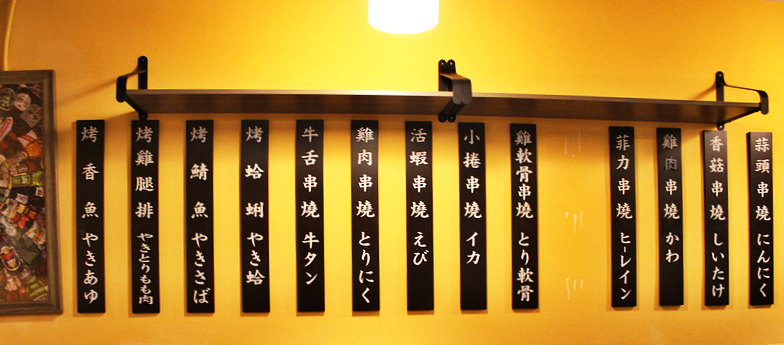 蒜頭串燒 にんにく
香菇串燒 しいたけ
雞肉串燒 かわ
菲力串燒 ヒーレイン
雞軟骨串燒 とり軟骨
小捲串燒 イカ
活蝦串燒 えび
雞肉串燒 とりにく
牛舌串燒 牛タン
烤蛤蜊 やき蛤
烤鯖魚 やきさば
烤雞腿排 やきとりもも肉
烤香魚 やきあゆ